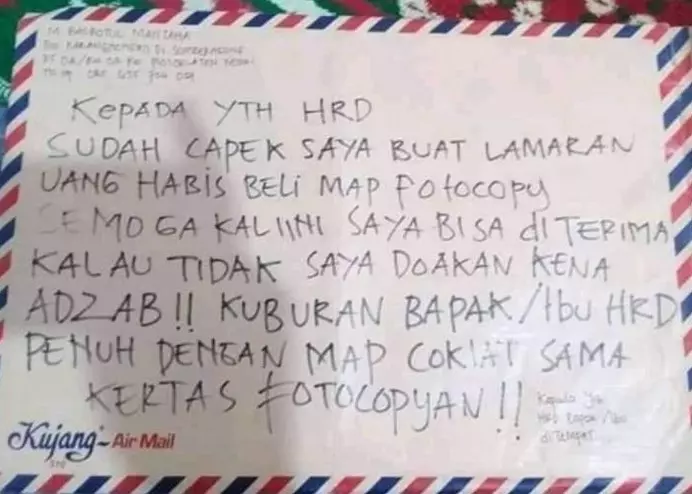 KEPADA YTH HRD
SUDAH CAPEK SAYA BUAT LAMARAN
UANG HABIS BELI MAP FOTOCOPY
SEMOGA KALIINI SAYA BISA diTERIMA
KALAU TIDAK SAYA DOAKAN KENA
ADZAB!! KUBURAN BAPAK/Ibu HRD
PENUH DENGAN MAP COKLAT SAMA
KERTAS FOTOCOPYAN!!
Kepada Yth
HRD Bapak/Ibu
diTempat
Kujang- Air Mail